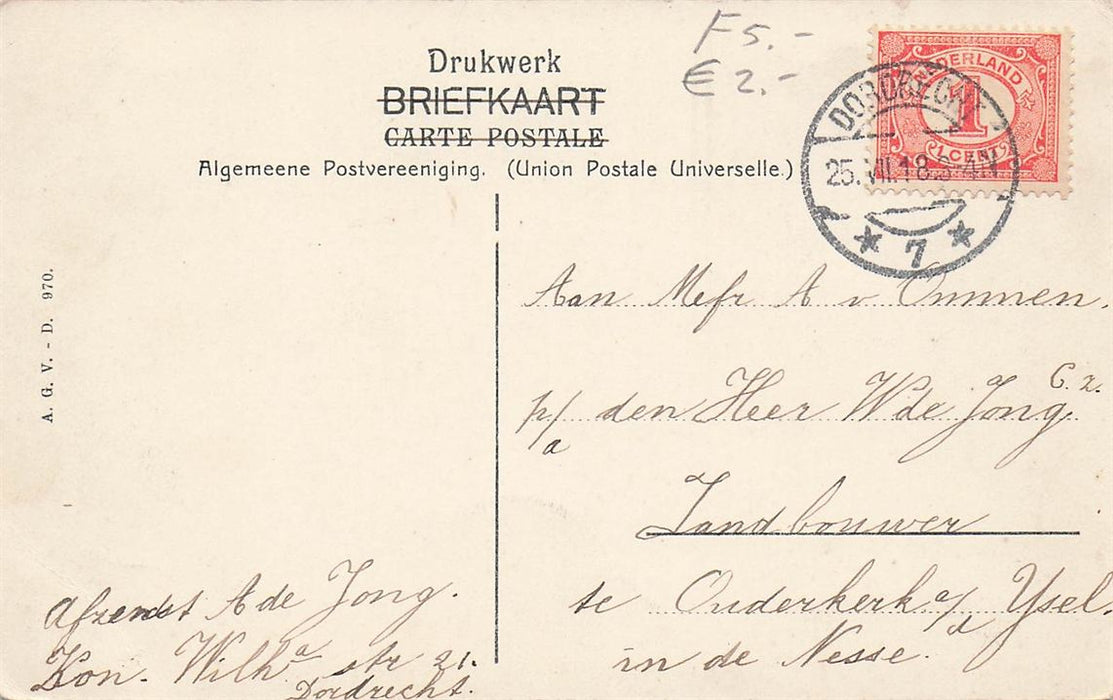 F 5.-
€ 2.-
Drukwerk
BRIEFKAART
CARTE POSTALE
Algemeene Postvereeniging. (Union Postale Universelle.)
NEDERLAND
1
1 CENT
DORDRECHT
25.VII.18.
7
A. G. V. - D. 970.
Aan Mejr A v Ommen,
p/a den Heer W de Jong C.z.
Landbouwer
te Ouderkerk a/d Ysel.
in de Nesse.
Afzendst A de Jong.
Kon. Wilha str 21.
Dordrecht.